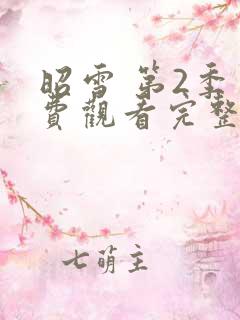 昭雪 第2季
費觀看完整
七萌主